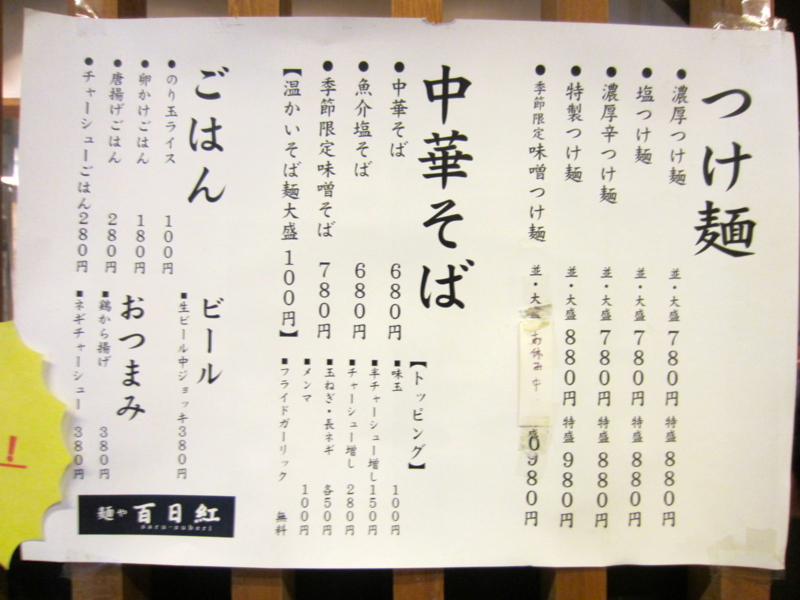 つけ麺
●濃厚つけ麺 並・大盛 780円 特盛 880円
●塩つけ麺 並・大盛 780円 特盛 880円
●濃厚辛つけ麺 並・大盛 780円 特盛 880円
●特製つけ麺 並・大盛 880円 特盛 980円
●季節限定味噌つけ麺 並・大盛 お休み中 盛 980円
中華そば
●中華そば 680円
●魚介塩そば 680円
●季節限定味噌そば 780円
【温かいそば麺大盛100円】
【トッピング】
■味玉 100円
■半チャーシュー増し 150円
■チャーシュー増し 280円
■玉ねぎ・長ネギ 各50円
■メンマ 100円
■フライドガーリック 無料
ごはん
●のり玉ライス 100円
●卵かけごはん 180円
●唐揚げごはん 280円
●チャーシューごはん 280円
ビール
■生ビール中ジョッキ 380円
おつまみ
■鶏から揚げ 380円
■ネギチャーシュー 380円
麺や 百日紅
saru-suberi
!